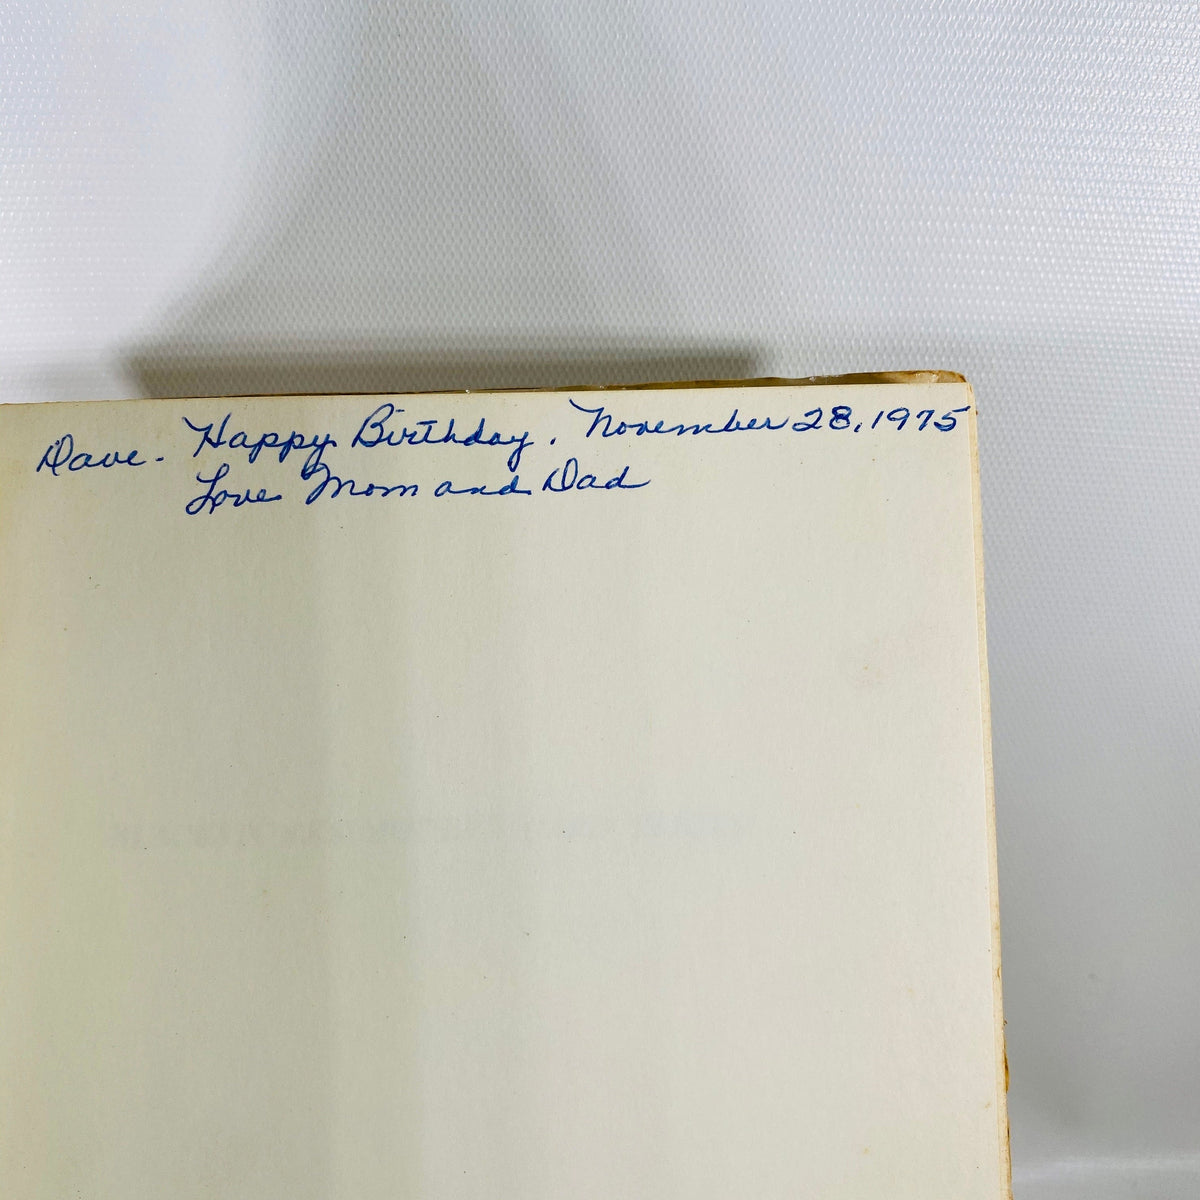 Dave. Happy Birthday. November 28, 1975
Love Mom and Dad